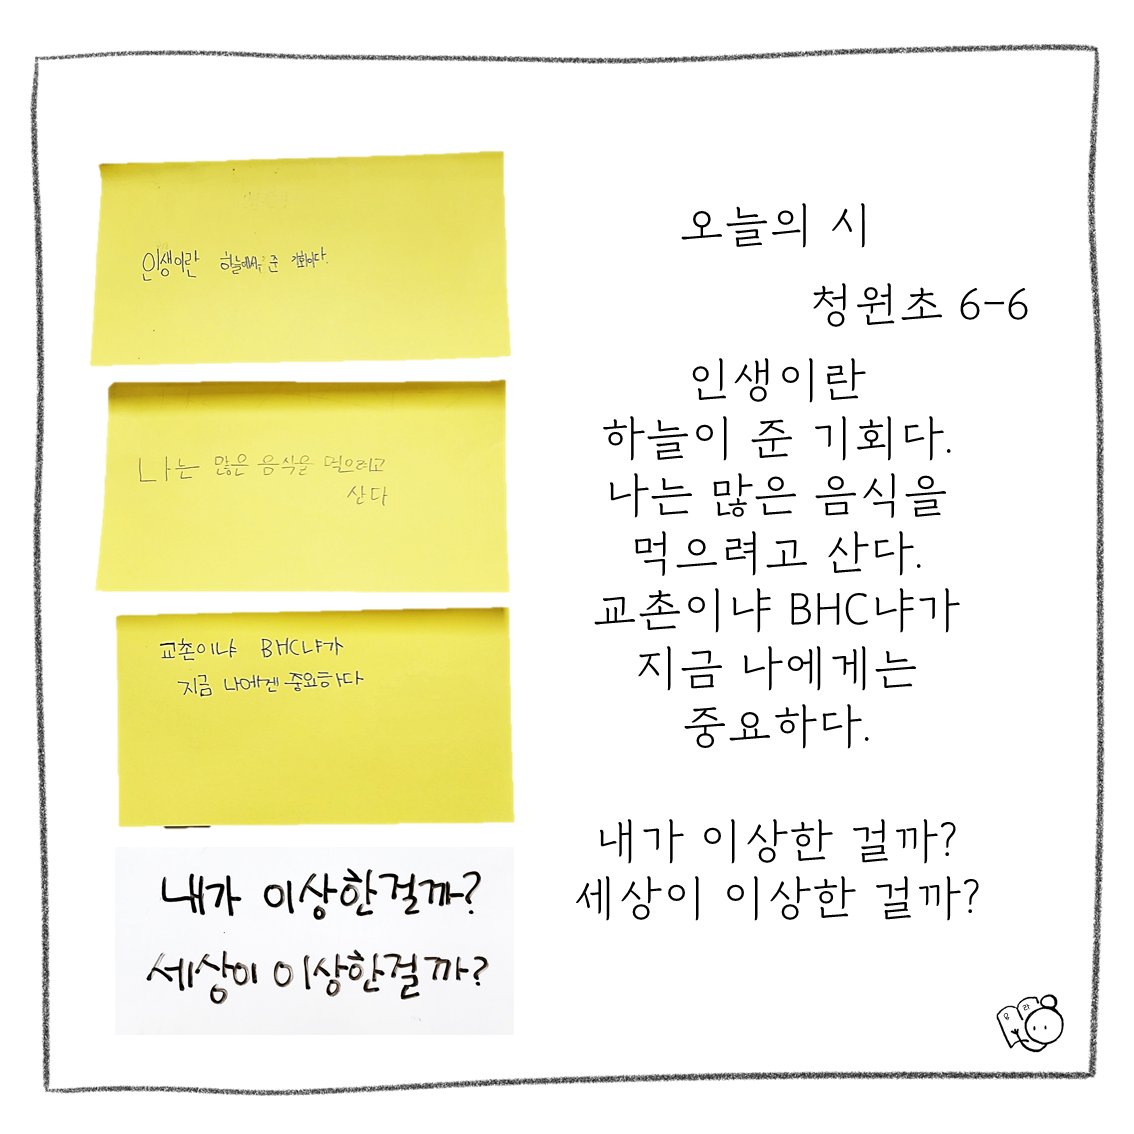 인생이란 하늘에서 준 기회이다.
나는 많은 음식을 먹으려고
산다
교촌이냐 BHC냐가
지금 나에겐 중요하다
내가 이상한걸까?
세상이 이상한걸까?
오늘의 시
청원초 6-6
인생이란
하늘이 준 기회다.
나는 많은 음식을
먹으려고 산다.
교촌이냐 BHC냐가
지금 나에게는
중요하다.
내가 이상한 걸까?
세상이 이상한 걸까?